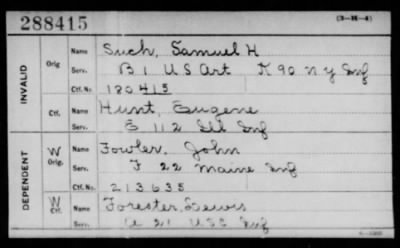 288415
(3-H-4)
INVALID
Orig
Name Such, Samuel H
Serv. B 1 US Art K 90 N Y Inf
Ctf. No. 180415
Ctf.
Name Hunt, Eugene
Serv. E 112 Ill Inf
DEPENDENT
W Orig.
Name Fowler, John
Serv. F 22 Maine Inf
Ctf. No. 213635
W Ctf.
Name Forester, Lewis
Serv. A 21 USC Inf